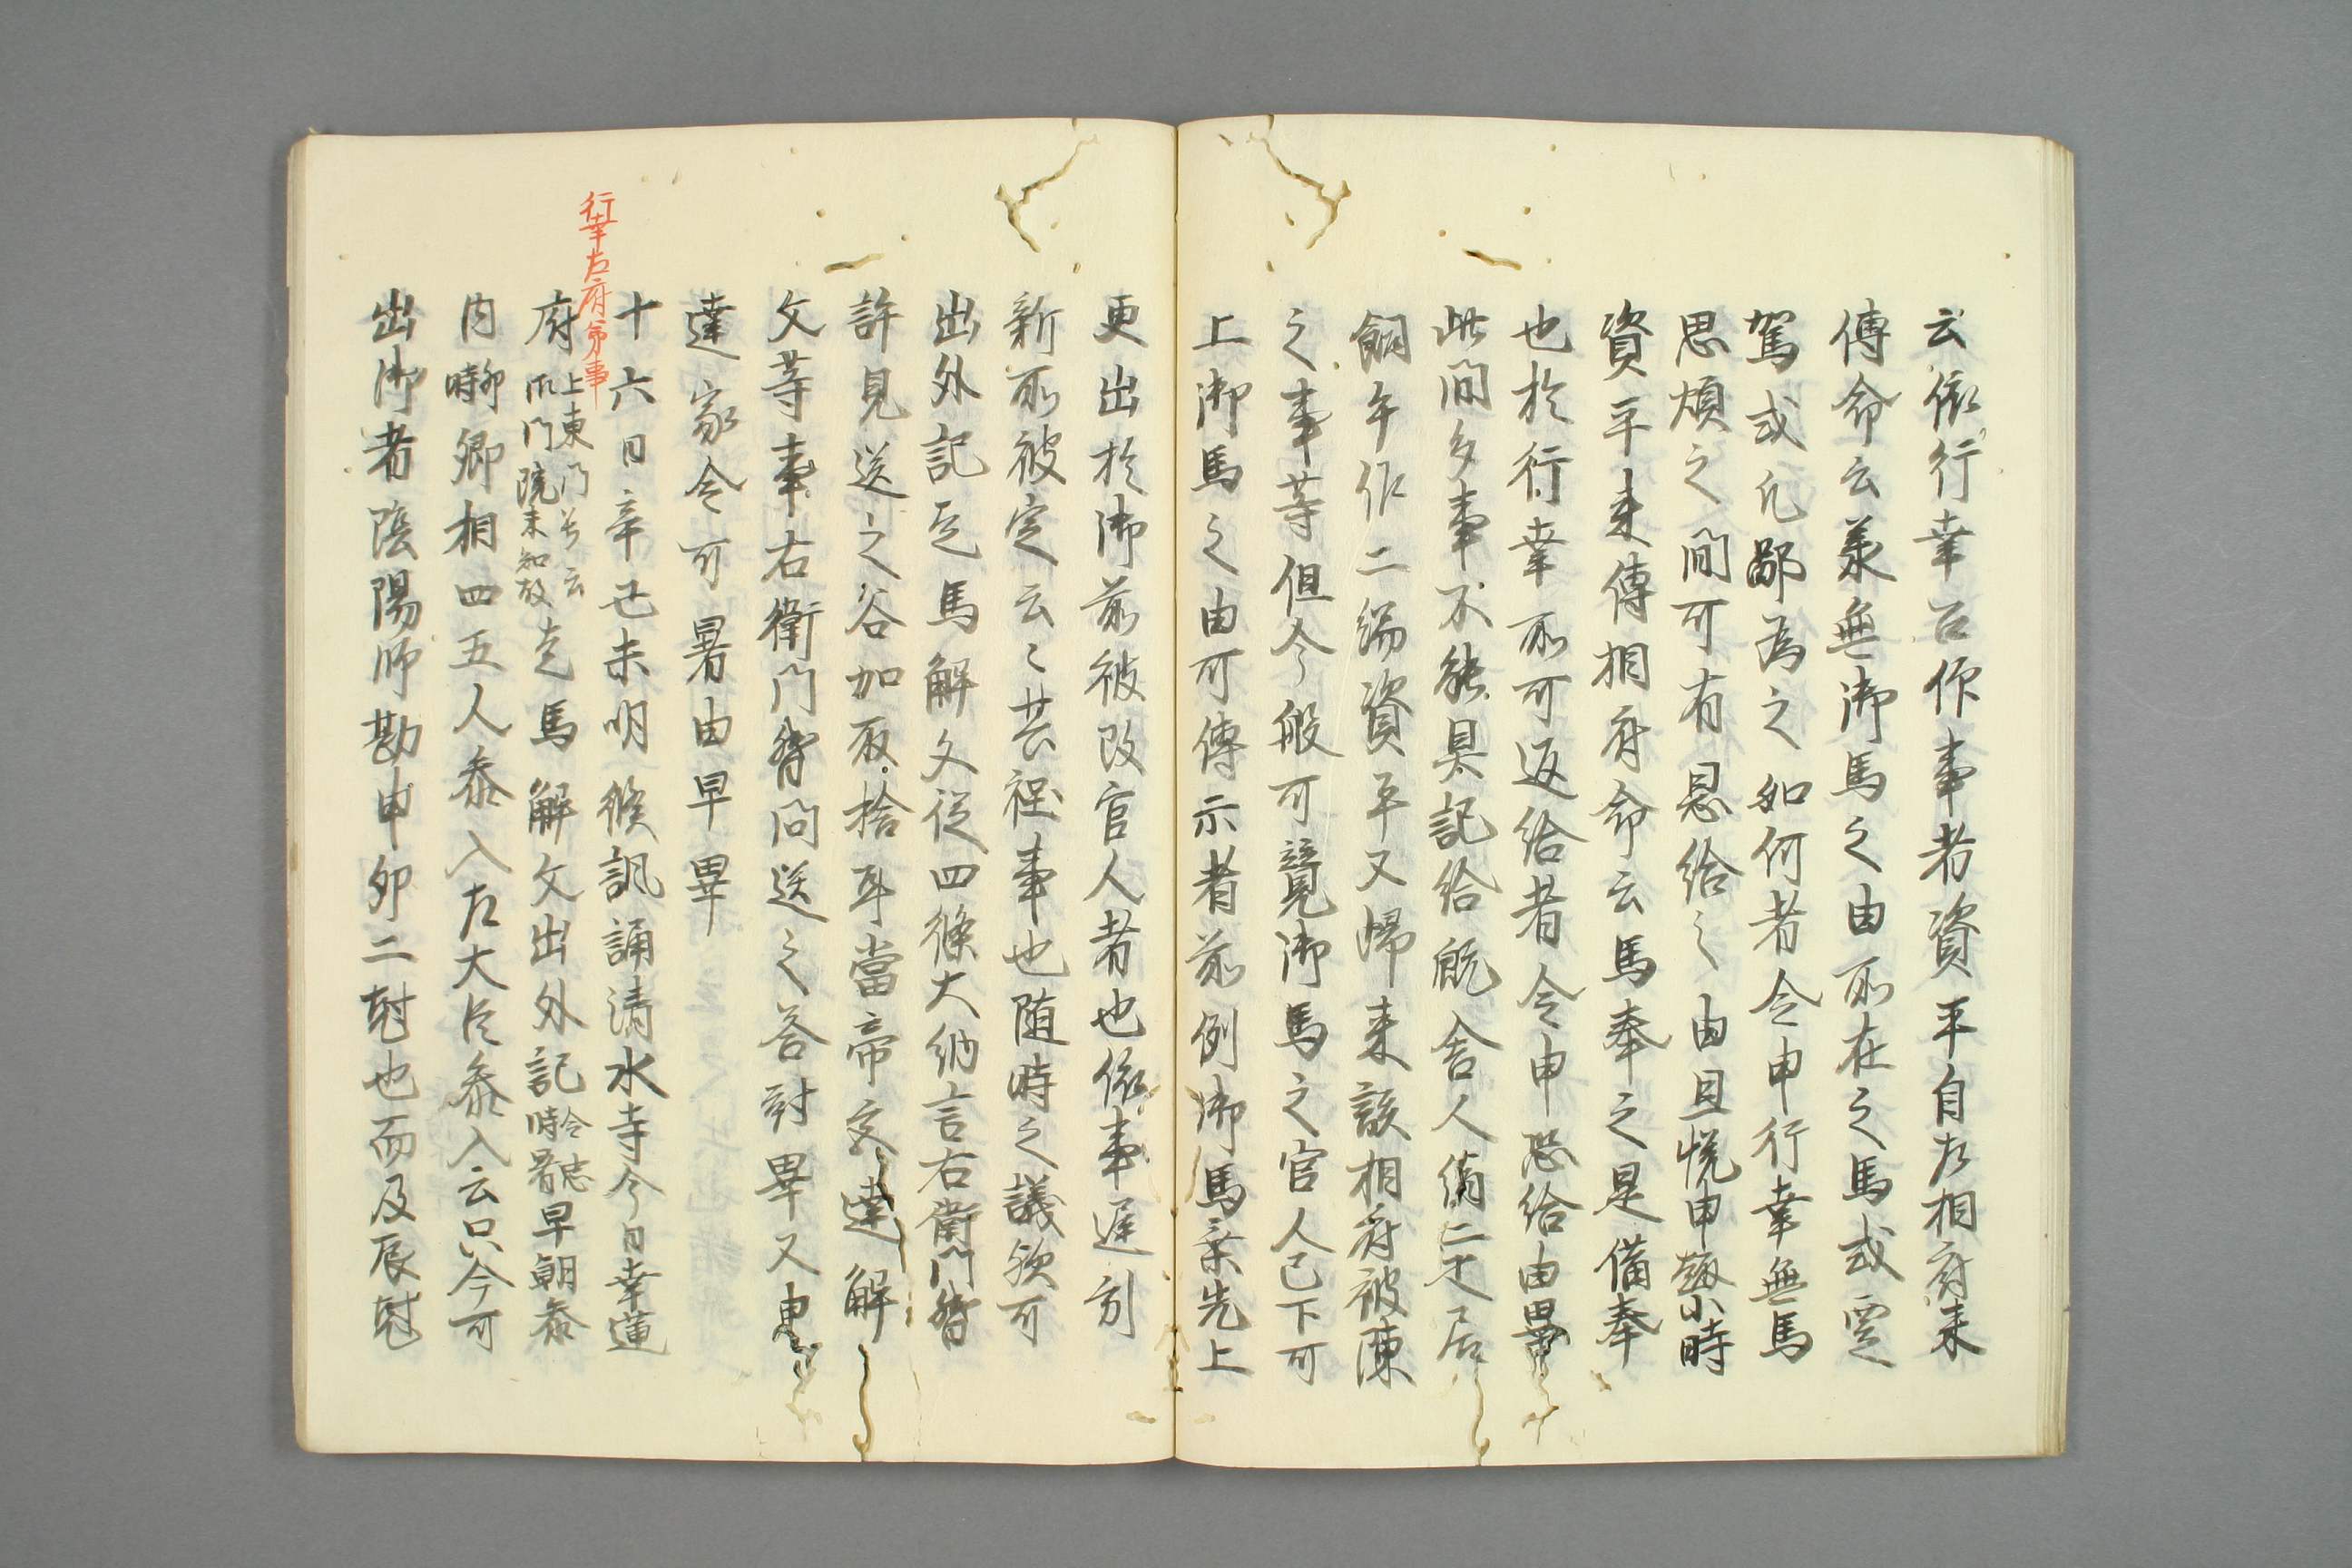 云依行幸召作事者資平自左相府来
傳命云羕無御馬之由所在之馬或要
駕或凡鄙為之如何者令申行幸無馬
思煩之間可有恩給之由且悦申趂小時
資平来傳相府命云馬奉之是備奉
也於行幸所可返給者令申恐給由畢
此間多事不能具記給厩舎人絹二疋居
飼午作二端資平又帰来談相府被陳
之事等但今般可競御馬之官人已下可
上御馬之由可傳示者前例御馬乗先上
更出於御前被改官人者也依事遅引
新所被定云々甚程事也随時之議欤可
出外記走馬解文從四條大納言右衛門督
許見送之谷加取捨耳當帝文達解
文等事右衛門督問送之答對畢又申
達家令可署由早畢
行幸左府第事
十六日辛巳未明候諷誦清水寺今日幸蓮
府上東門第云爪門院未知故走馬解文出外記令志時署早朝参
内卯時卿相四五人参入左大臣参入云只今可
出御者陰陽师勘申卯二尅也而及辰尅